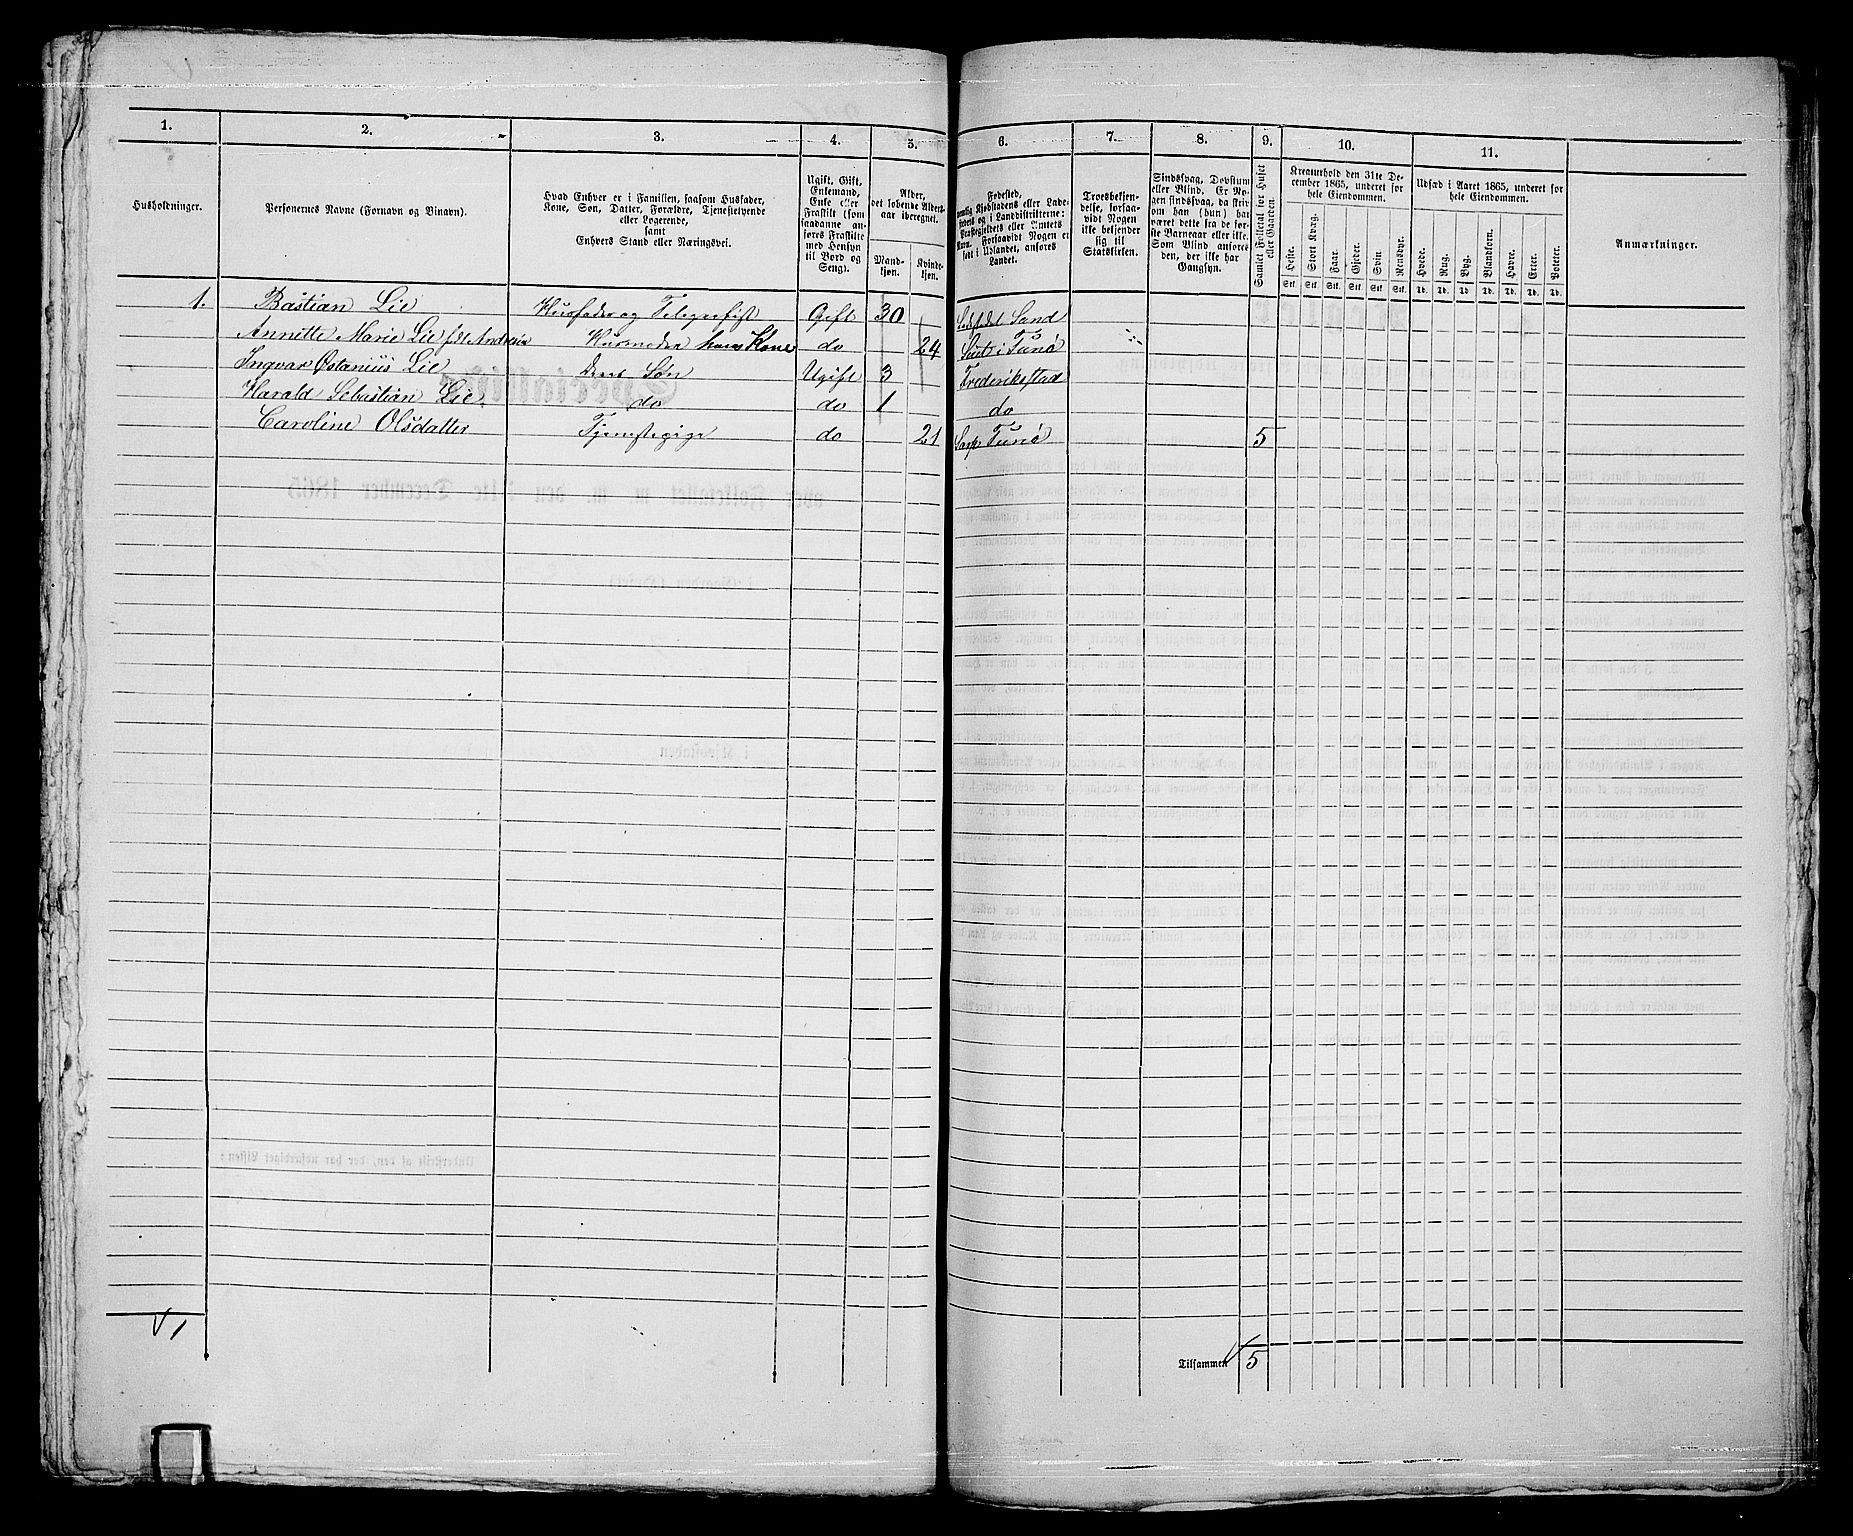 1. 2. 3. 4. 5. 6. 7. 8. 9. 10. 11.
Husholdninger.
Personernes Navne (Fornavn og Binavn).
Hvad Enhver er i Familien, saasom Husfader,
Kone, Søn, Datter, Forældre, Tjenestetyende
eller Logerende,
samt
Enhvers Stand eller Næringsvei.
Ugift, Gift,
Enkemand,
Enke eller
Fraskilt (som
saadanne an-
føres Fraskilte
med Hensyn
til Bord og
Seng).
Alder,
det løbende Alders-
aar iberegnet.
Mand-
kjøn.
Kvind-
kjøn.
Fødested,
Kjøbstadens eller Lade-
og i Landdistrikterne:
eller Amtets
Navn. Forsaavidt Nogen er
født i Udlandet, anføres
Landet.
Troesbekjen-
delse, forsaa-
vidt Nogen
ikke bekjender
sig til
Statskirken.
Sindssvag, Døvstum
eller Blind. Er No-
gen sindssvag, da skriv
om han (hun) har
været dette fra de før-
ste Barneaar eller ikke.
Som Blind anføres
den, der ikke har
Gangsyn.
Samlet Folketal for Huset
eller Gaarden.
Kreaturhold den 31te De-
cember 1865, underet for
hele Eiendommen.
Heste. Stort Kvæg. Faar. Gjeder. Svin. Rensdyr.
Stk. Stk. Stk. Stk. Stk. Stk.
Udsæd i Aaret 1865, underet for
hele Eiendommen.
Hvede. Rug. Byg. Blandkorn. Havre. Erter. Poteter.
Td. Td. Td. Td. Td. Td. Td.
Anmærkninger.
1. Bastian Lie Huusfader og Telegrafist Gift 30 Sand
Annette Marie Lie fdt Huusmoder hans Kone do 24 i Tunø
Ingvar Østanius Lie Deres Søn Ugift 3 Frederikstad
Harald Sebastian Lie do do 1 do
Caroline Olsdatter Tjenestepige do 21 Sarp Tunø 5
1
Tilsammen 5